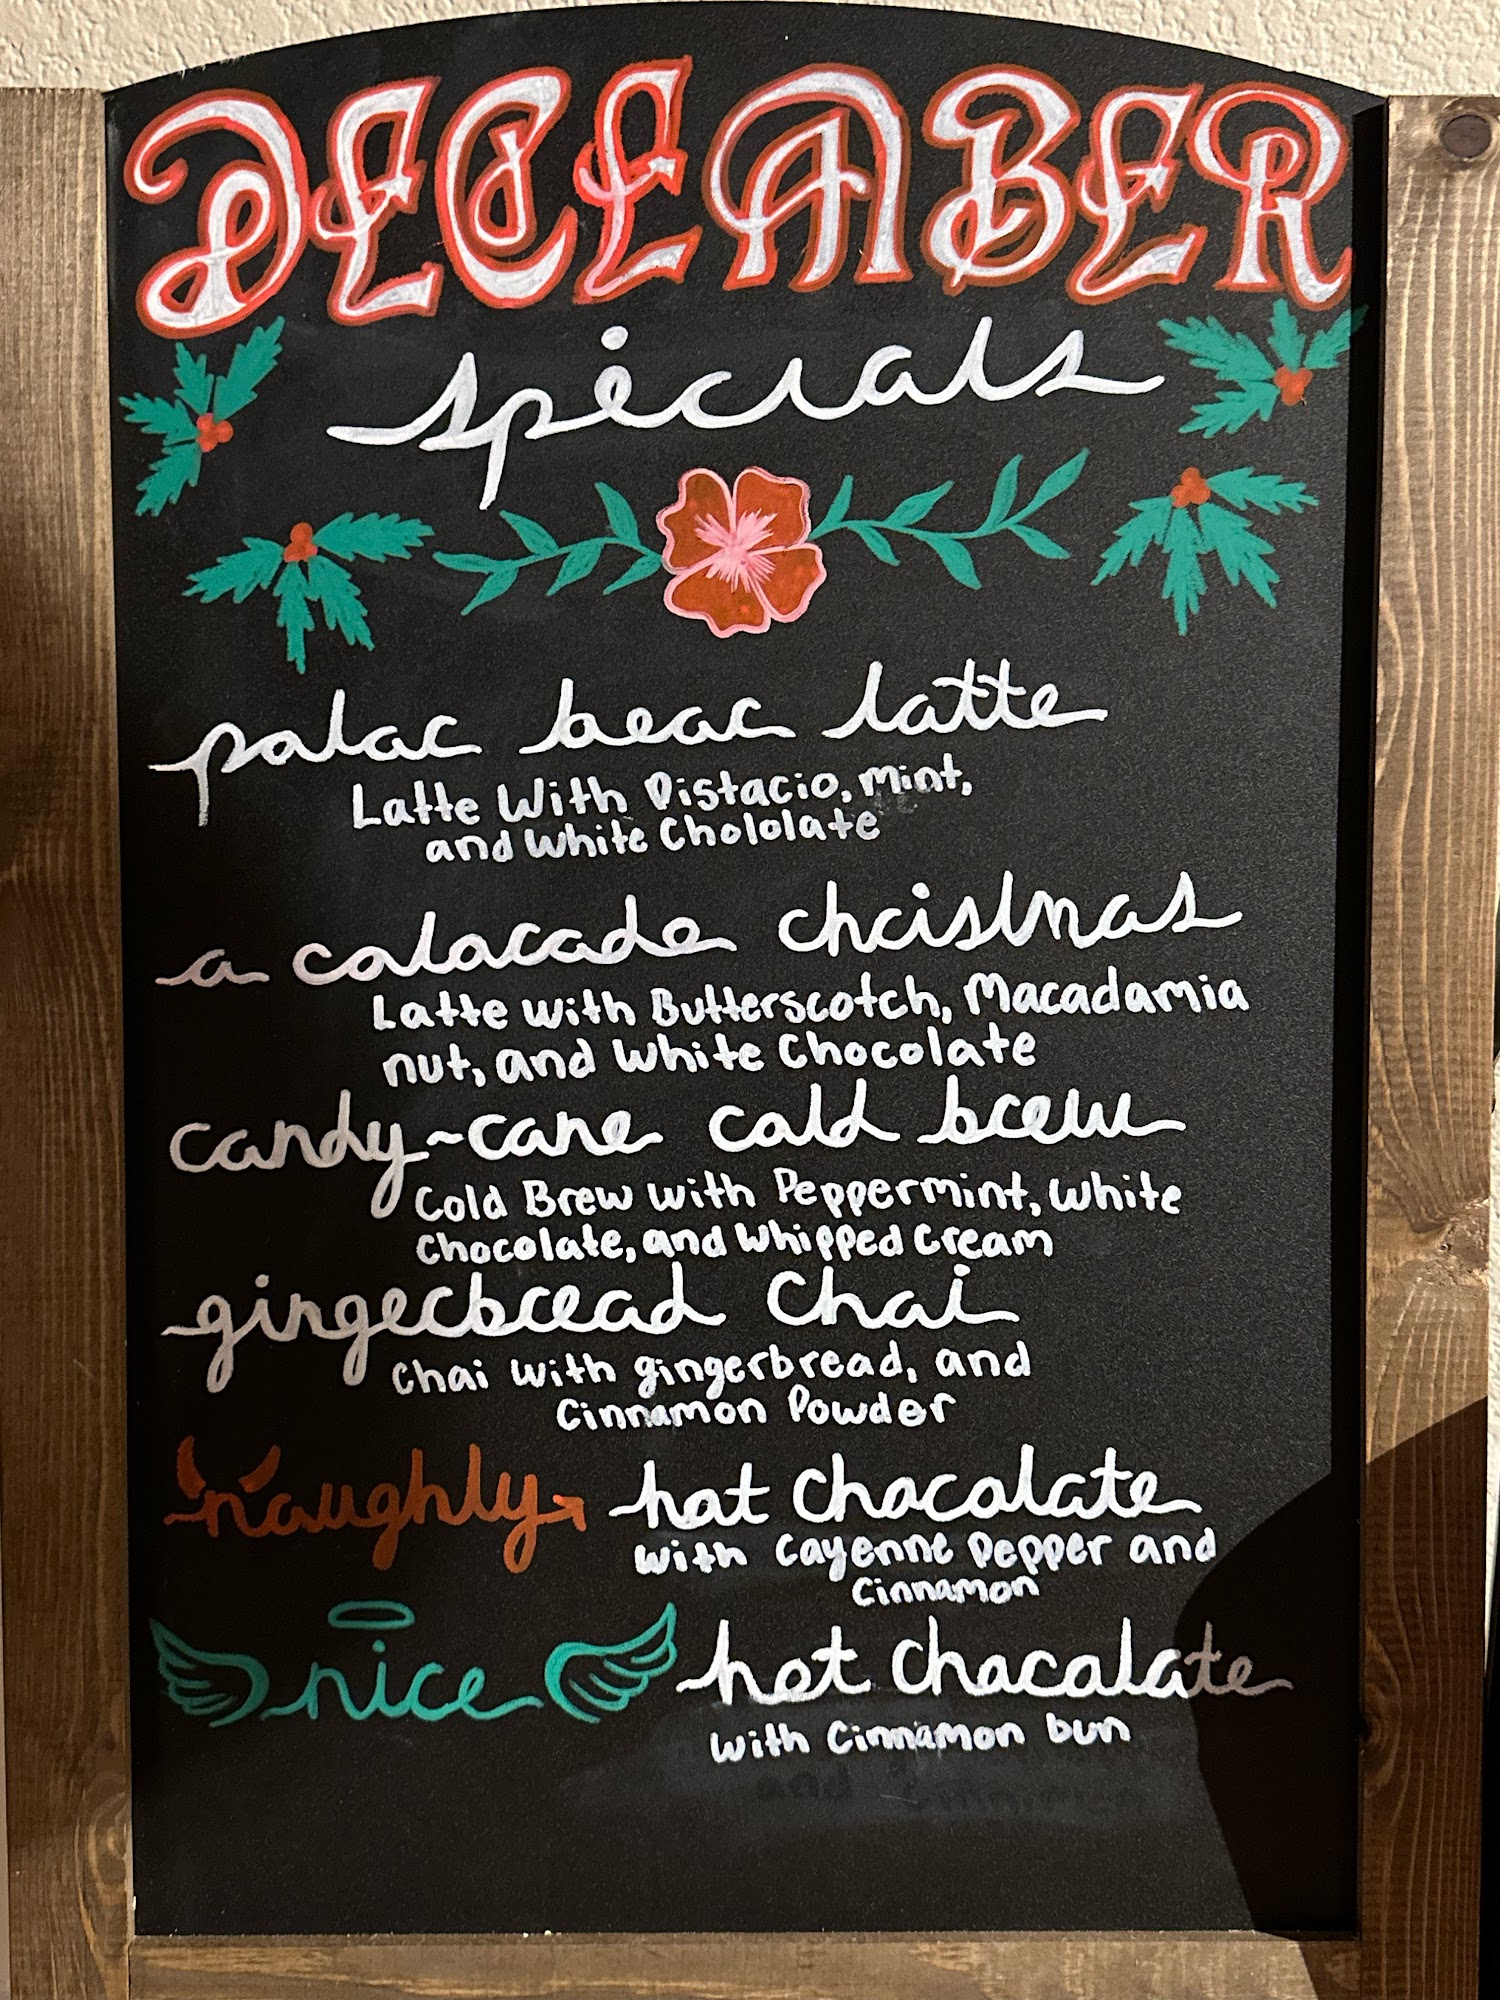 DECEMBER
specials
polar bear latte
Latte With Pistacio, Mint,
and White Chololate
a colorado christmas
Latte with Butterscotch, Macadamia
nut, and White Chocolate
candy~cane cold brew
Cold Brew with Peppermint, White
Chocolate, and Whipped Cream
gingerbread chai
Chai with gingerbread, and
Cinnamon Powder
naughty hot chocolate
with Cayenne Pepper and
Cinnamon
nice hot chocolate
with Cinnamon bun